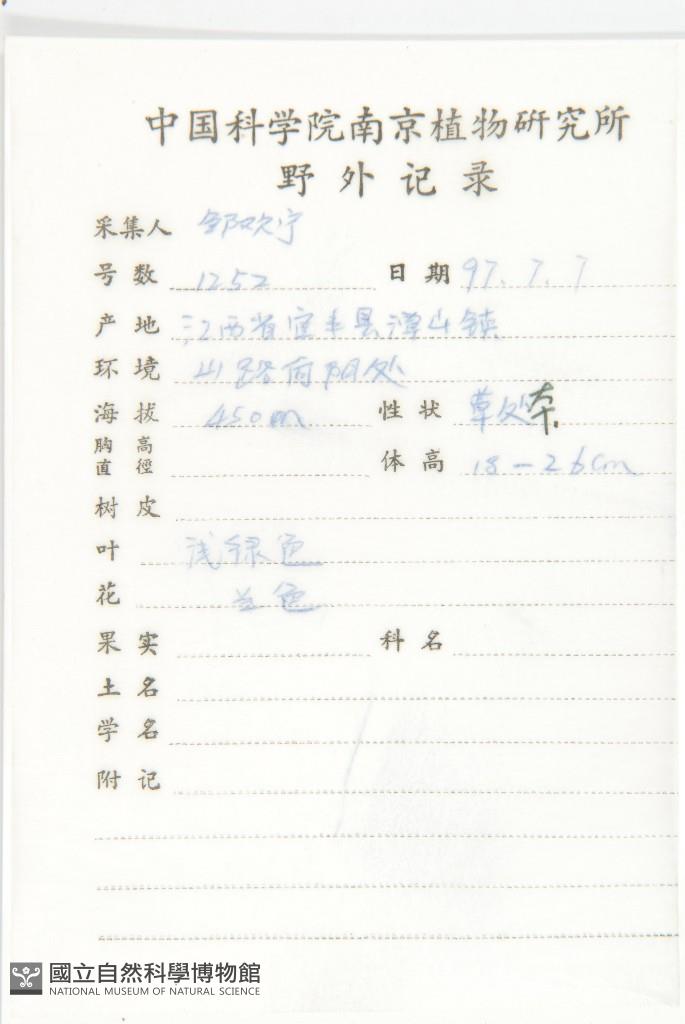 中国科学院南京植物研究所
野外记录
采集人 邹欢宁
号数 1252 日期 97.7.7
产地 江西省宜丰县潭山镇
环境 山路向阳处
海拔 450m 性状 草本
胸高直径 体高 18-26cm
树皮
叶 浅绿色
花 兰色
果实 科名
土名
学名
附记
國立自然科學博物館
NATIONAL MUSEUM OF NATURAL SCIENCE